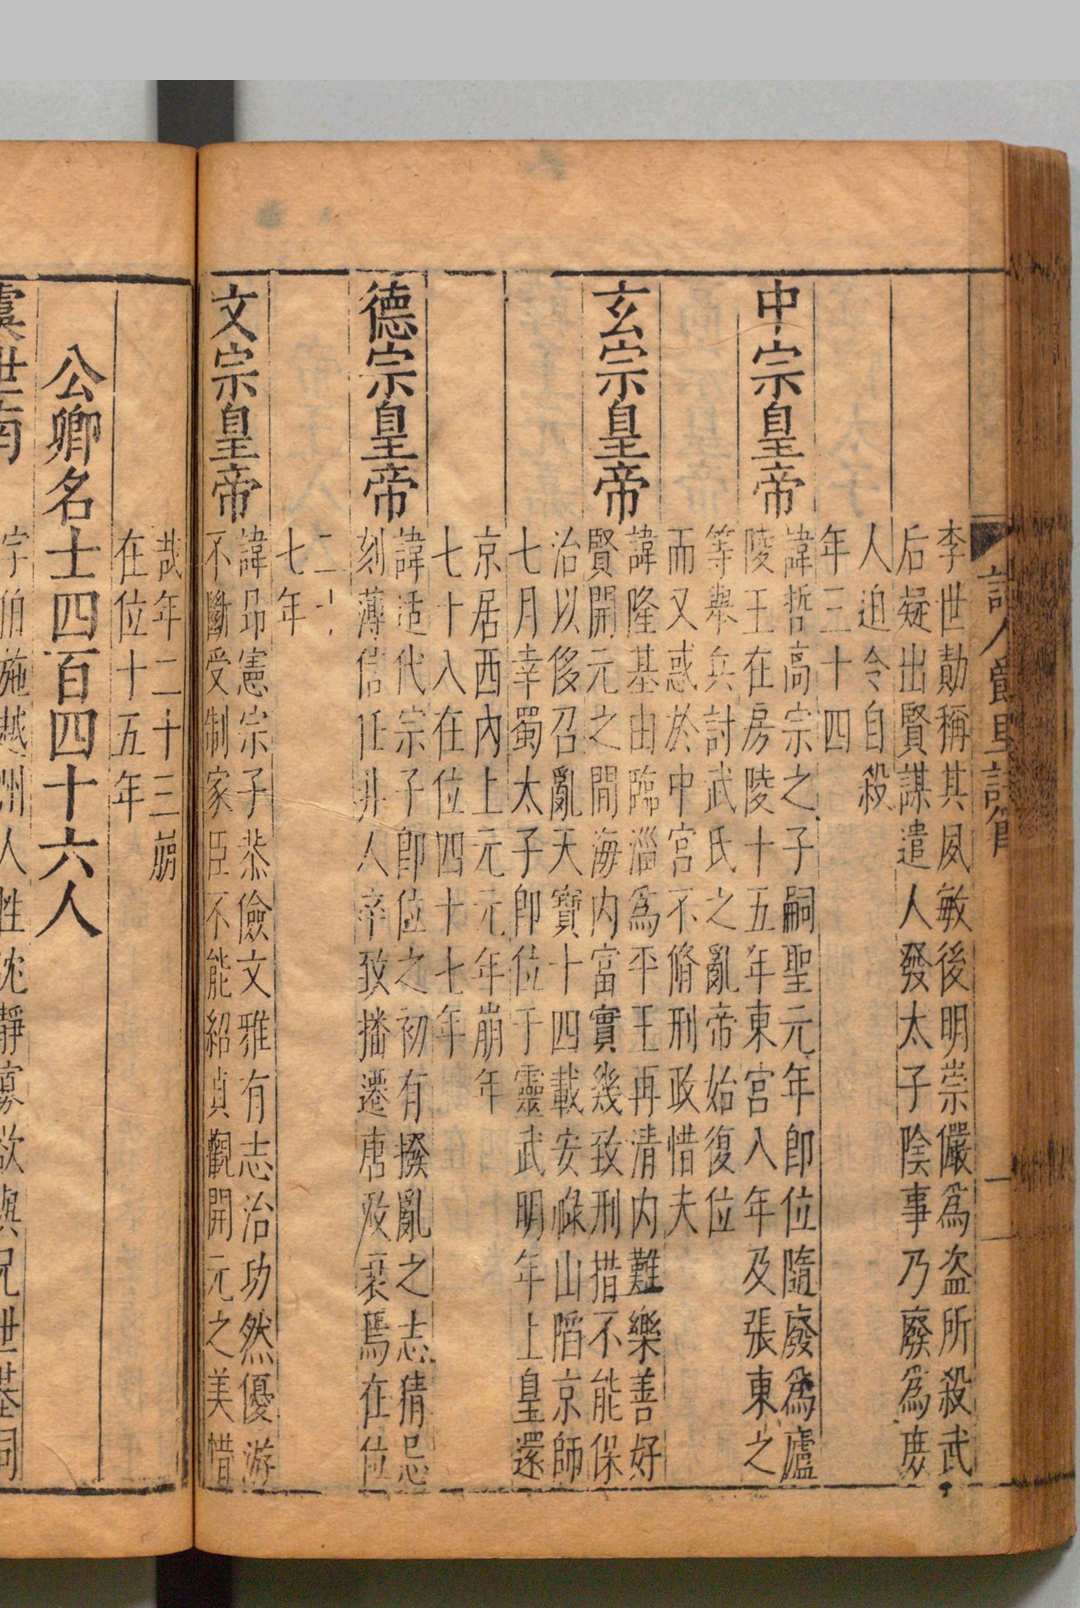 詩人爵里詳節
一
李世勣稱其夙敏後明崇儼爲盜所殺武
后疑出賢謀遣人發太子陰事乃廢爲庶
人迫令自殺
年三十四
中宗皇帝
諱哲高宗之子嗣聖元年即位隨廢爲廬
陵王在房陵十五年東宮入年及張東之
等舉兵討武氏之亂帝始復位
而又惑於中宮不脩刑政惜夫
玄宗皇帝
諱隆基由臨淄爲平王再清内難樂善好
賢開元之間海内富實幾致刑措不能保
治以侈召亂天寶十四載安祿山陷京師
七月幸蜀太子即位于靈武明年上皇還
京居西內上元元年崩年
七十入在位四十七年
德宗皇帝
諱适代宗子即位之初有撥亂之志猜忌
刻薄信任非人卒致播遷唐政衰焉在位
二十
七年
文宗皇帝
諱昻憲宗子恭儉文雅有志治功然優游
不斷受制家臣不能紹貞觀開元之美惜
哉年二十三崩
在位十五年
公卿名士四百四十六人
虞世南
字伯施越州人性沈靜寡欲與兄世基同